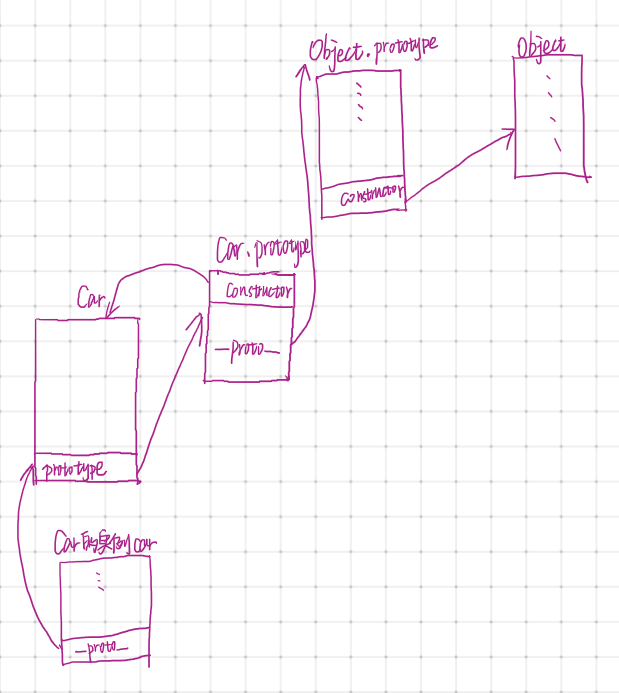 Object.prototype
Object
constructor
Car.prototype
constructor
__proto__
Car
prototype
Car的实例car
__proto__